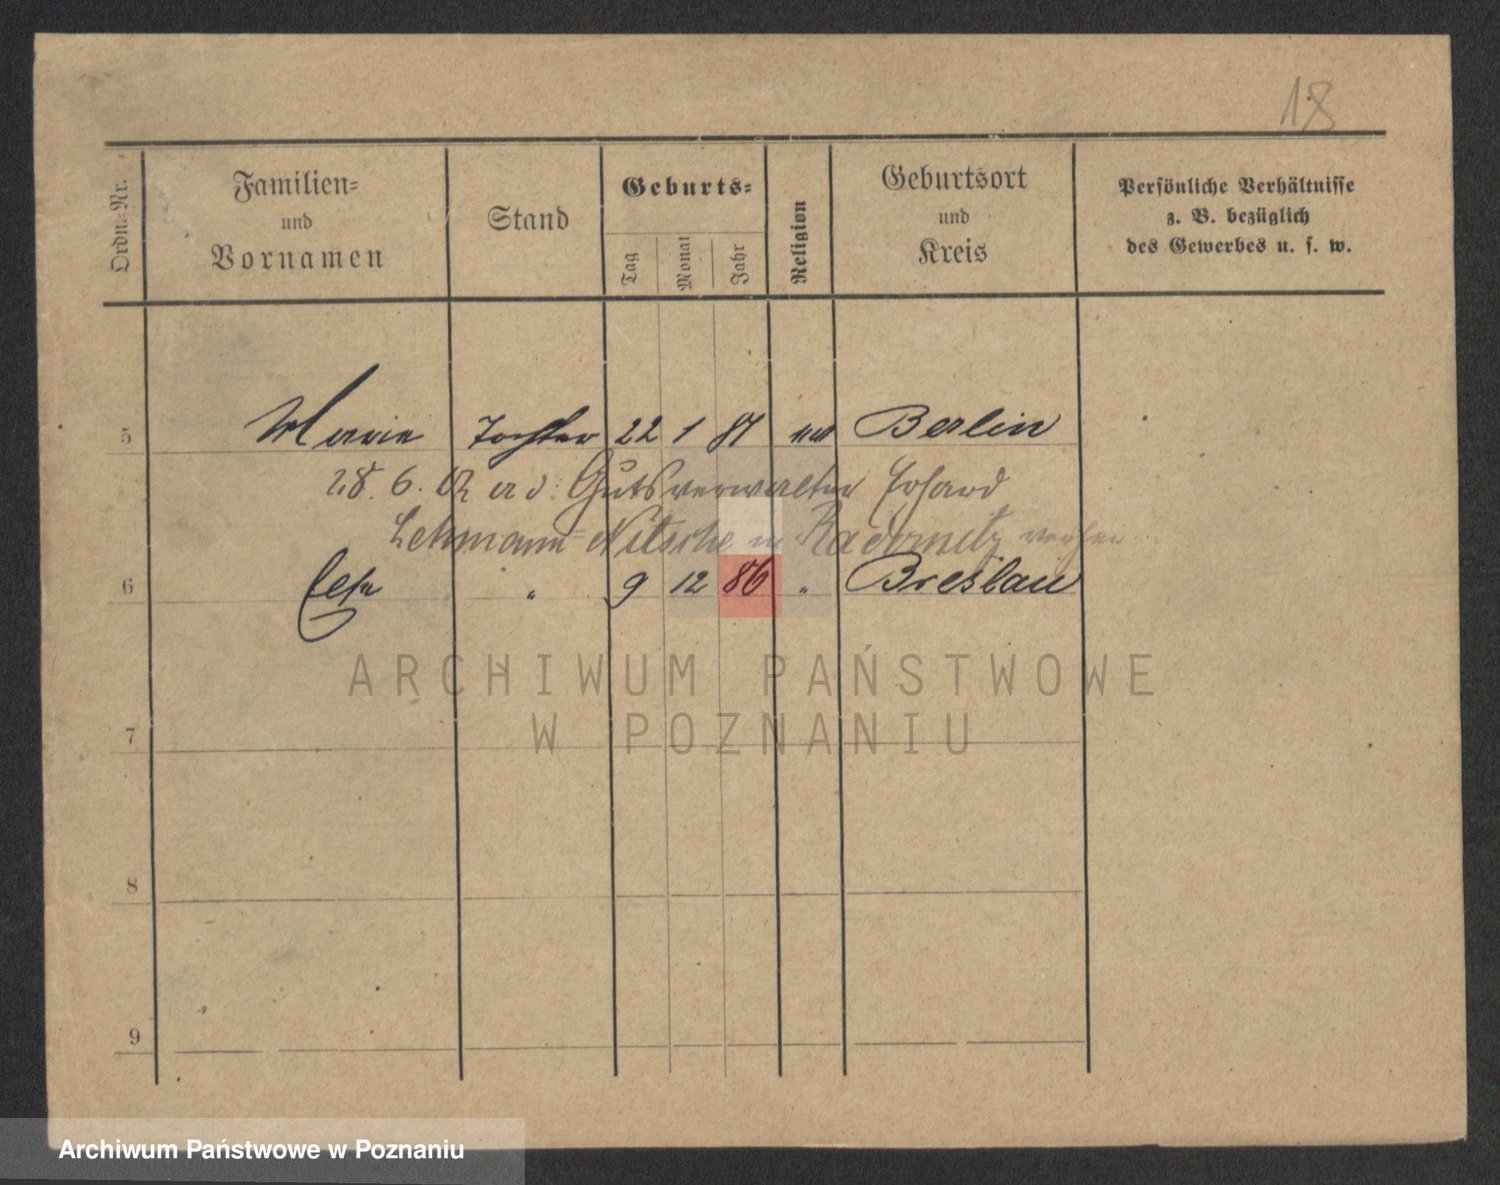 18
Ordn.-Nr.
Familien-
und
Vornamen
Stand
Geburts-
Tag
Monat
Jahr
Religion
Geburtsort
und
Kreis
Persönliche Verhältnisse
z. B. bezüglich
des Gewerbes u. s. w.
5 Marie Tochter 22 1 81 Berlin
28. 6. Gutsverwalter Erhard
Lehmann-Nitsche in Radomitz
6 Else " 9 12 86 " Breslau
ARCHIWUM PAŃSTWOWE
W POZNANIU
7
8
9
Archiwum Państwowe w Poznaniu